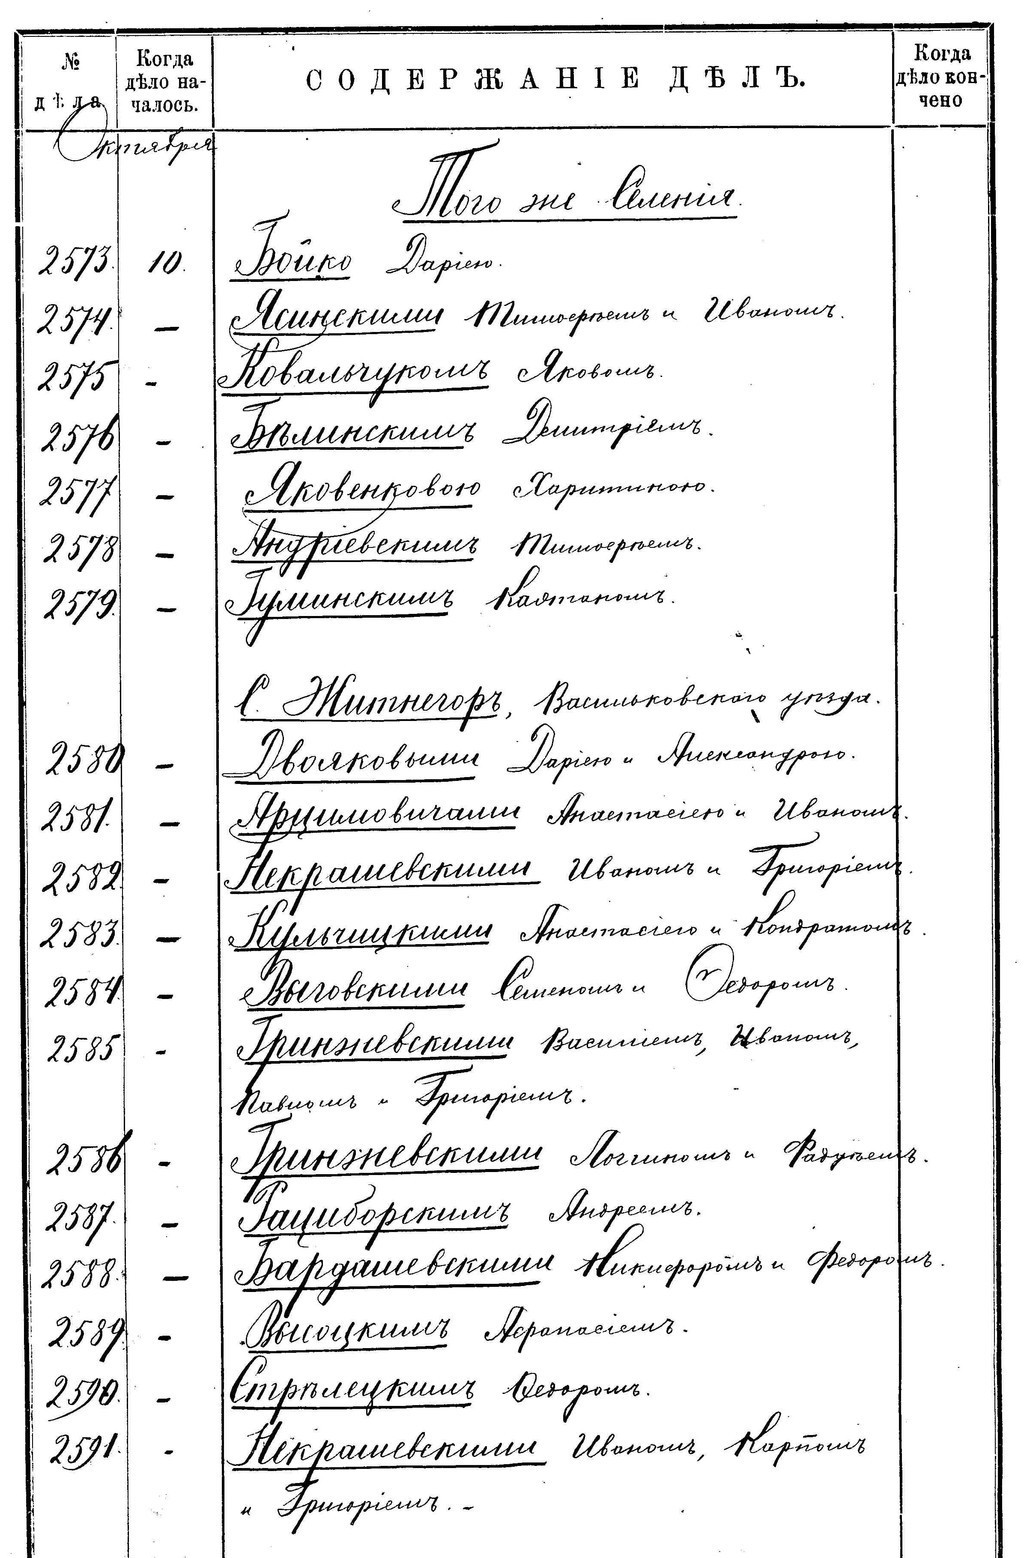 № дѣла
Когда дѣло началось.
СОДЕРЖАНІЕ ДѢЛЪ.
Когда дѣло кончено
Октября
Того же Селенія.
2573. 10. Бойко Даріею.
2574. — Ясинскими Тимоѳеемъ и Иваномъ.
2575 - Ковальчукомъ Яковомъ.
2576 — Бѣлинскимъ Димитріемъ.
2577 — Яковенковою Харитиною.
2578 — Андріевскимъ Тимоѳеемъ.
2579. — Гуминскимъ Каэтаномъ.
С. Житнегоръ, Васильковскаго уѣзда.
2580 — Двояковыми Даріею и Александрою.
2581. — Арцимовичами Анастасіею и Иваномъ.
2582. — Некрашевскими Иваномъ и Григоріемъ.
2583. — Кульчицкими Анастасіею и Кондратомъ.
2584. — Выговскими Семеномъ и Ѳедоромъ.
2585 - Гринжевскими Василіемъ, Иваномъ,
Павломъ и Григоріемъ.
2586 - Гринжевскими Логгиномъ и Фадѣемъ.
2587. — Рациборскимъ Андреемъ.
2588. — Бардашевскими Никифоромъ и Федоромъ.
2589. - Высоцкимъ Афанасіемъ.
2590. - Стрѣлецкимъ Ѳедоромъ.
2591. - Некрашевскими Иваномъ, Карпомъ
и Григоріемъ. -